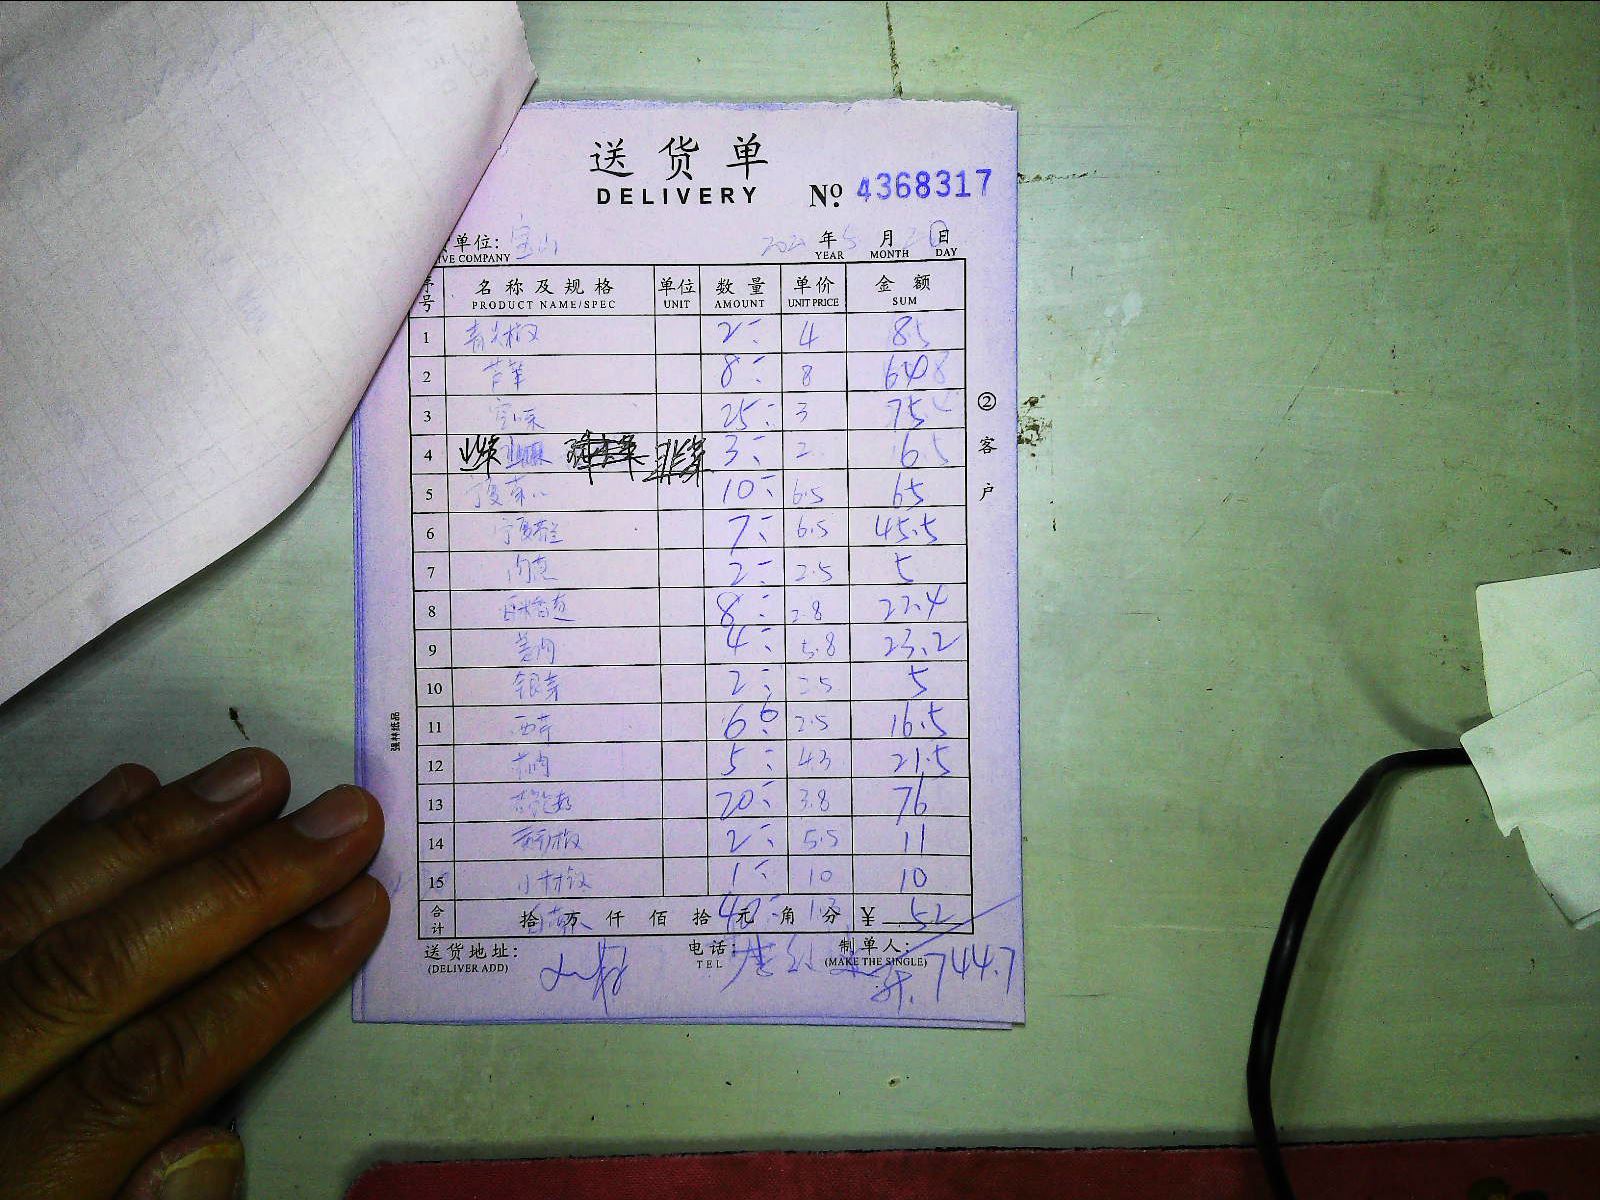 送货单
DELIVERY № 4368317
单位: 宝山 年 5 月 日
IVE COMPANY YEAR MONTH DAY
序号 名称及规格 单位 数量 单价 金额
PRODUCT NAME/SPEC UNIT AMOUNT UNIT PRICE SUM
1 青尖椒 2 4 8
2 芦笋 8 8 64
3 25 3 75
4 韭菜 3 2 6
5 宁夏菜心 10 6.5 65
6 宁夏芥兰 7 6.5 45.5
7 2 2.5 5
8 8 2.8 22.4
9 4 5.8 23.2
10 银芽 2 2.5 5
11 西芹 6.6 2.5 16.5
12 5 4.3 21.5
13 20 3.8 76
14 2 5.5 11
15 小米椒 1 10 10
合计 拾 万 仟 佰 拾 元 角 分 ¥ 40 1.3 52
送货地址: 电话: 制单人:
(DELIVER ADD) TEL (MAKE THE SINGLE)
744.7
②客户
强林纸品